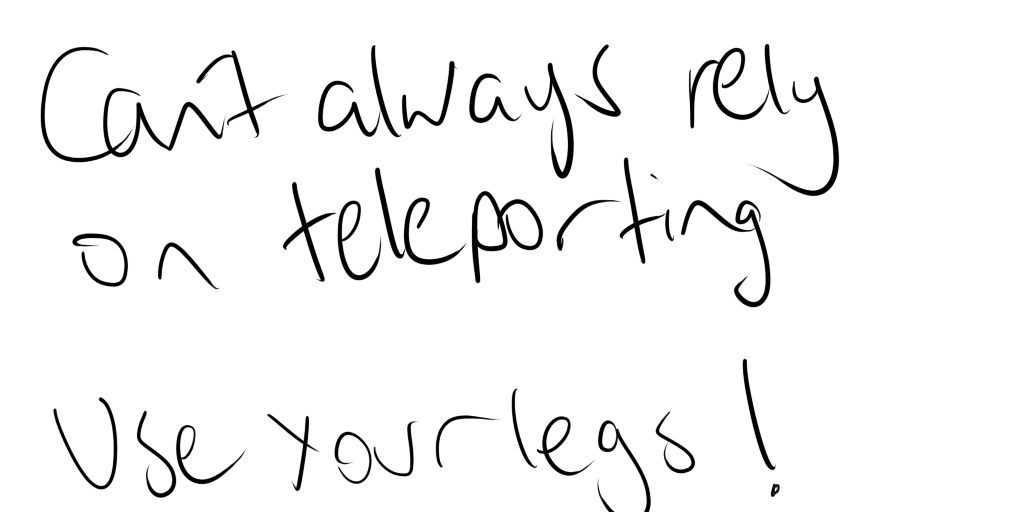 Can't always rely
on teleporting
Use your legs!